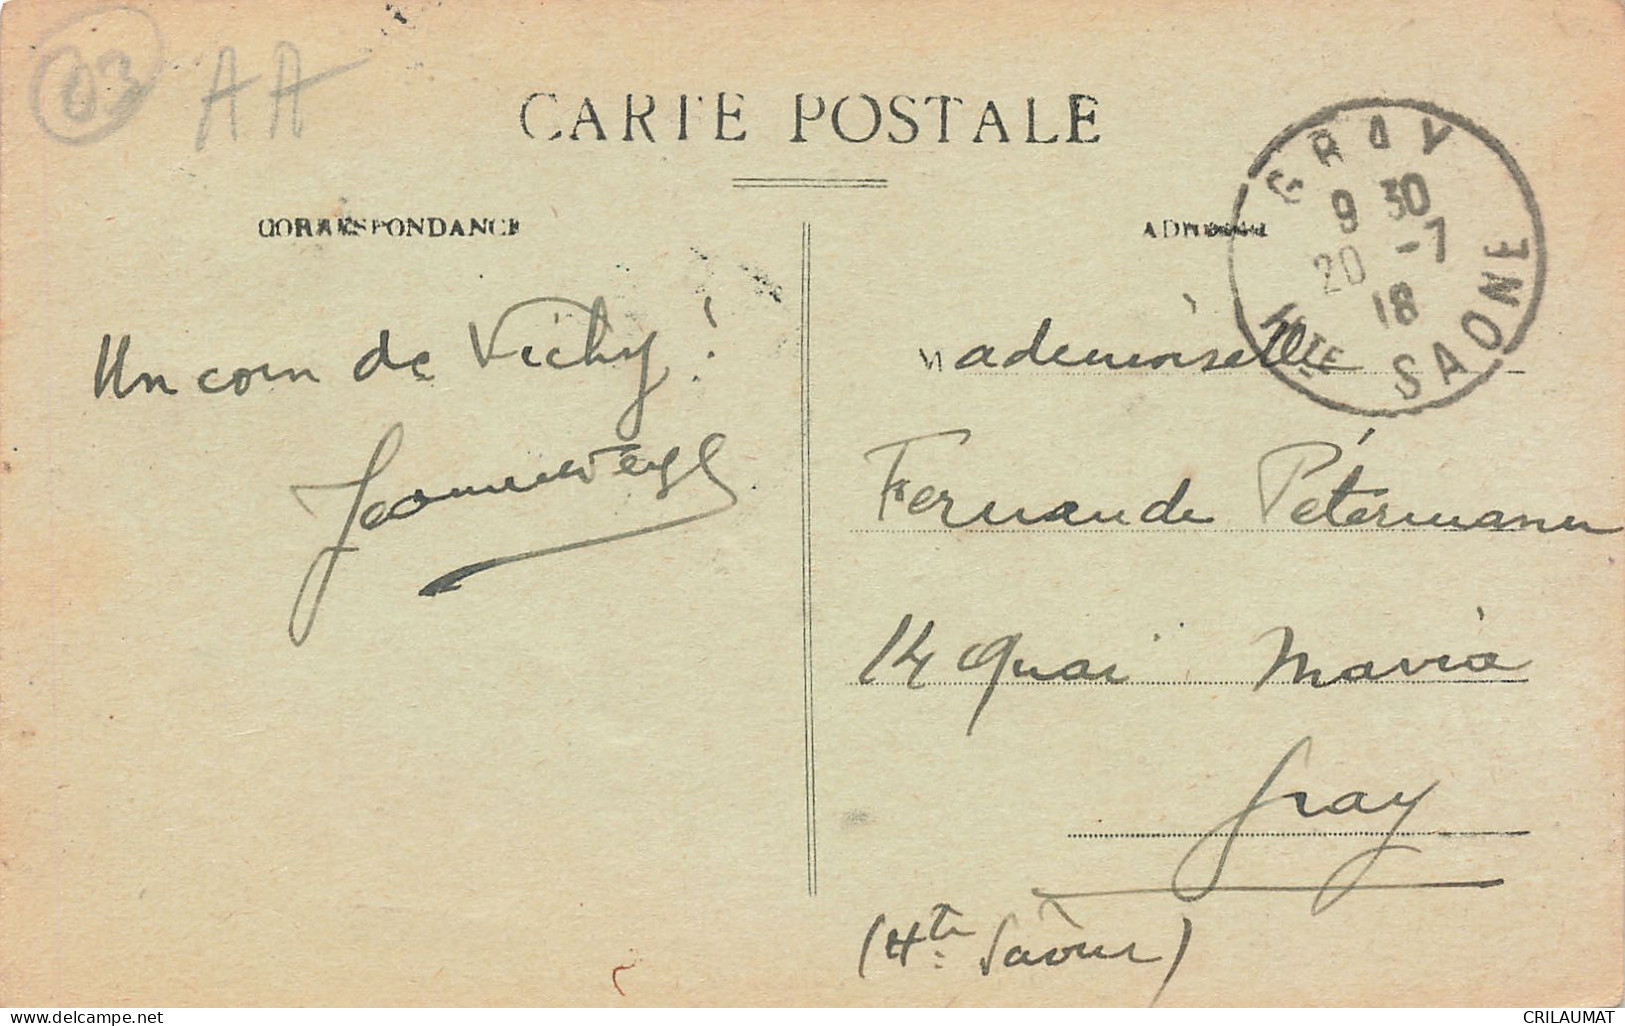 03 AA
CARTE POSTALE
CORRESPONDANCE
ADRESSE
GRAY
9 30
20 -7
18
Hte SAONE
Un coin de Vichy !
Mademoiselle
Fernande Pétermann
14 Quai Mavia
Gray
(Hte Saône)
CRILAUMAT